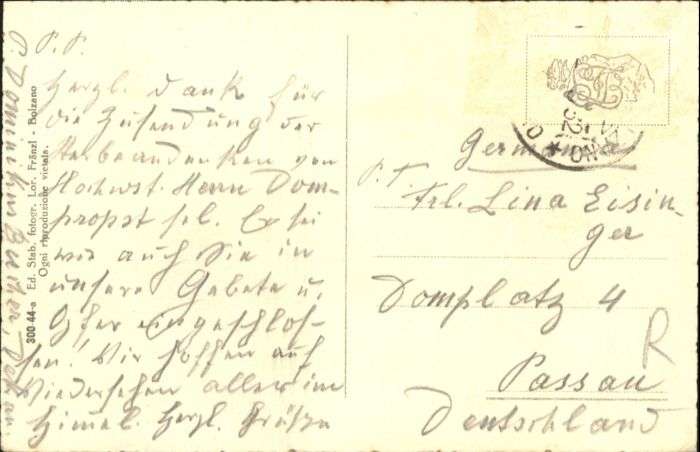 P. P.
Herzl. Dank für
die Zusendung der
Sterbeandenken von
Hochwst. Herrn Dom-
propst sel. Er sei
wie auch Sie in
unsere Gebete u.
Opfer eingeschlos-
sen! Wir hoffen auf
Wiedersehen aller im
Himmel. Herzl. Grüße
P. Dominikus
300 44-a Ed. Stab. fotogr. Lor. Fränzl - Bolzano
Ogni riproduzione vietata.
Germania
P. T.
Frl. Lina Eisin-
ger
Domplatz 4
Passau
Deutschland
R